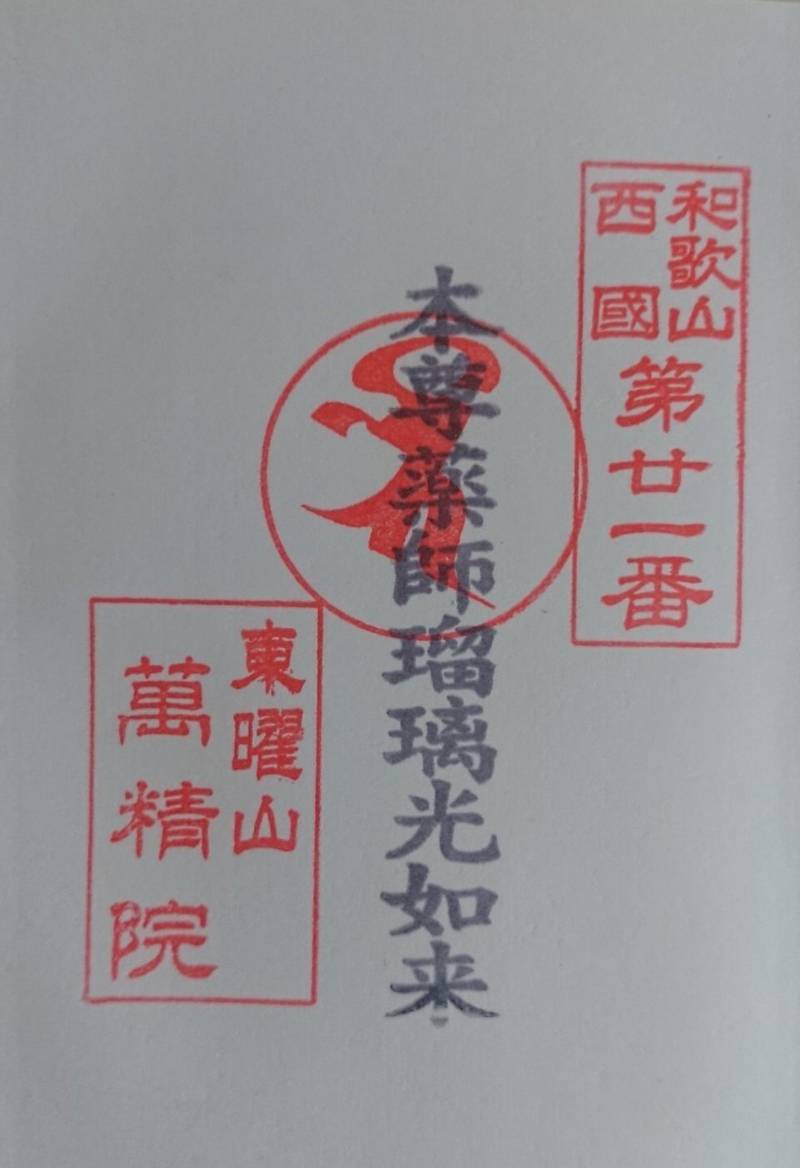 和歌山
西國
第廿一番
本尊薬師瑠璃光如来
東曜山
萬精院